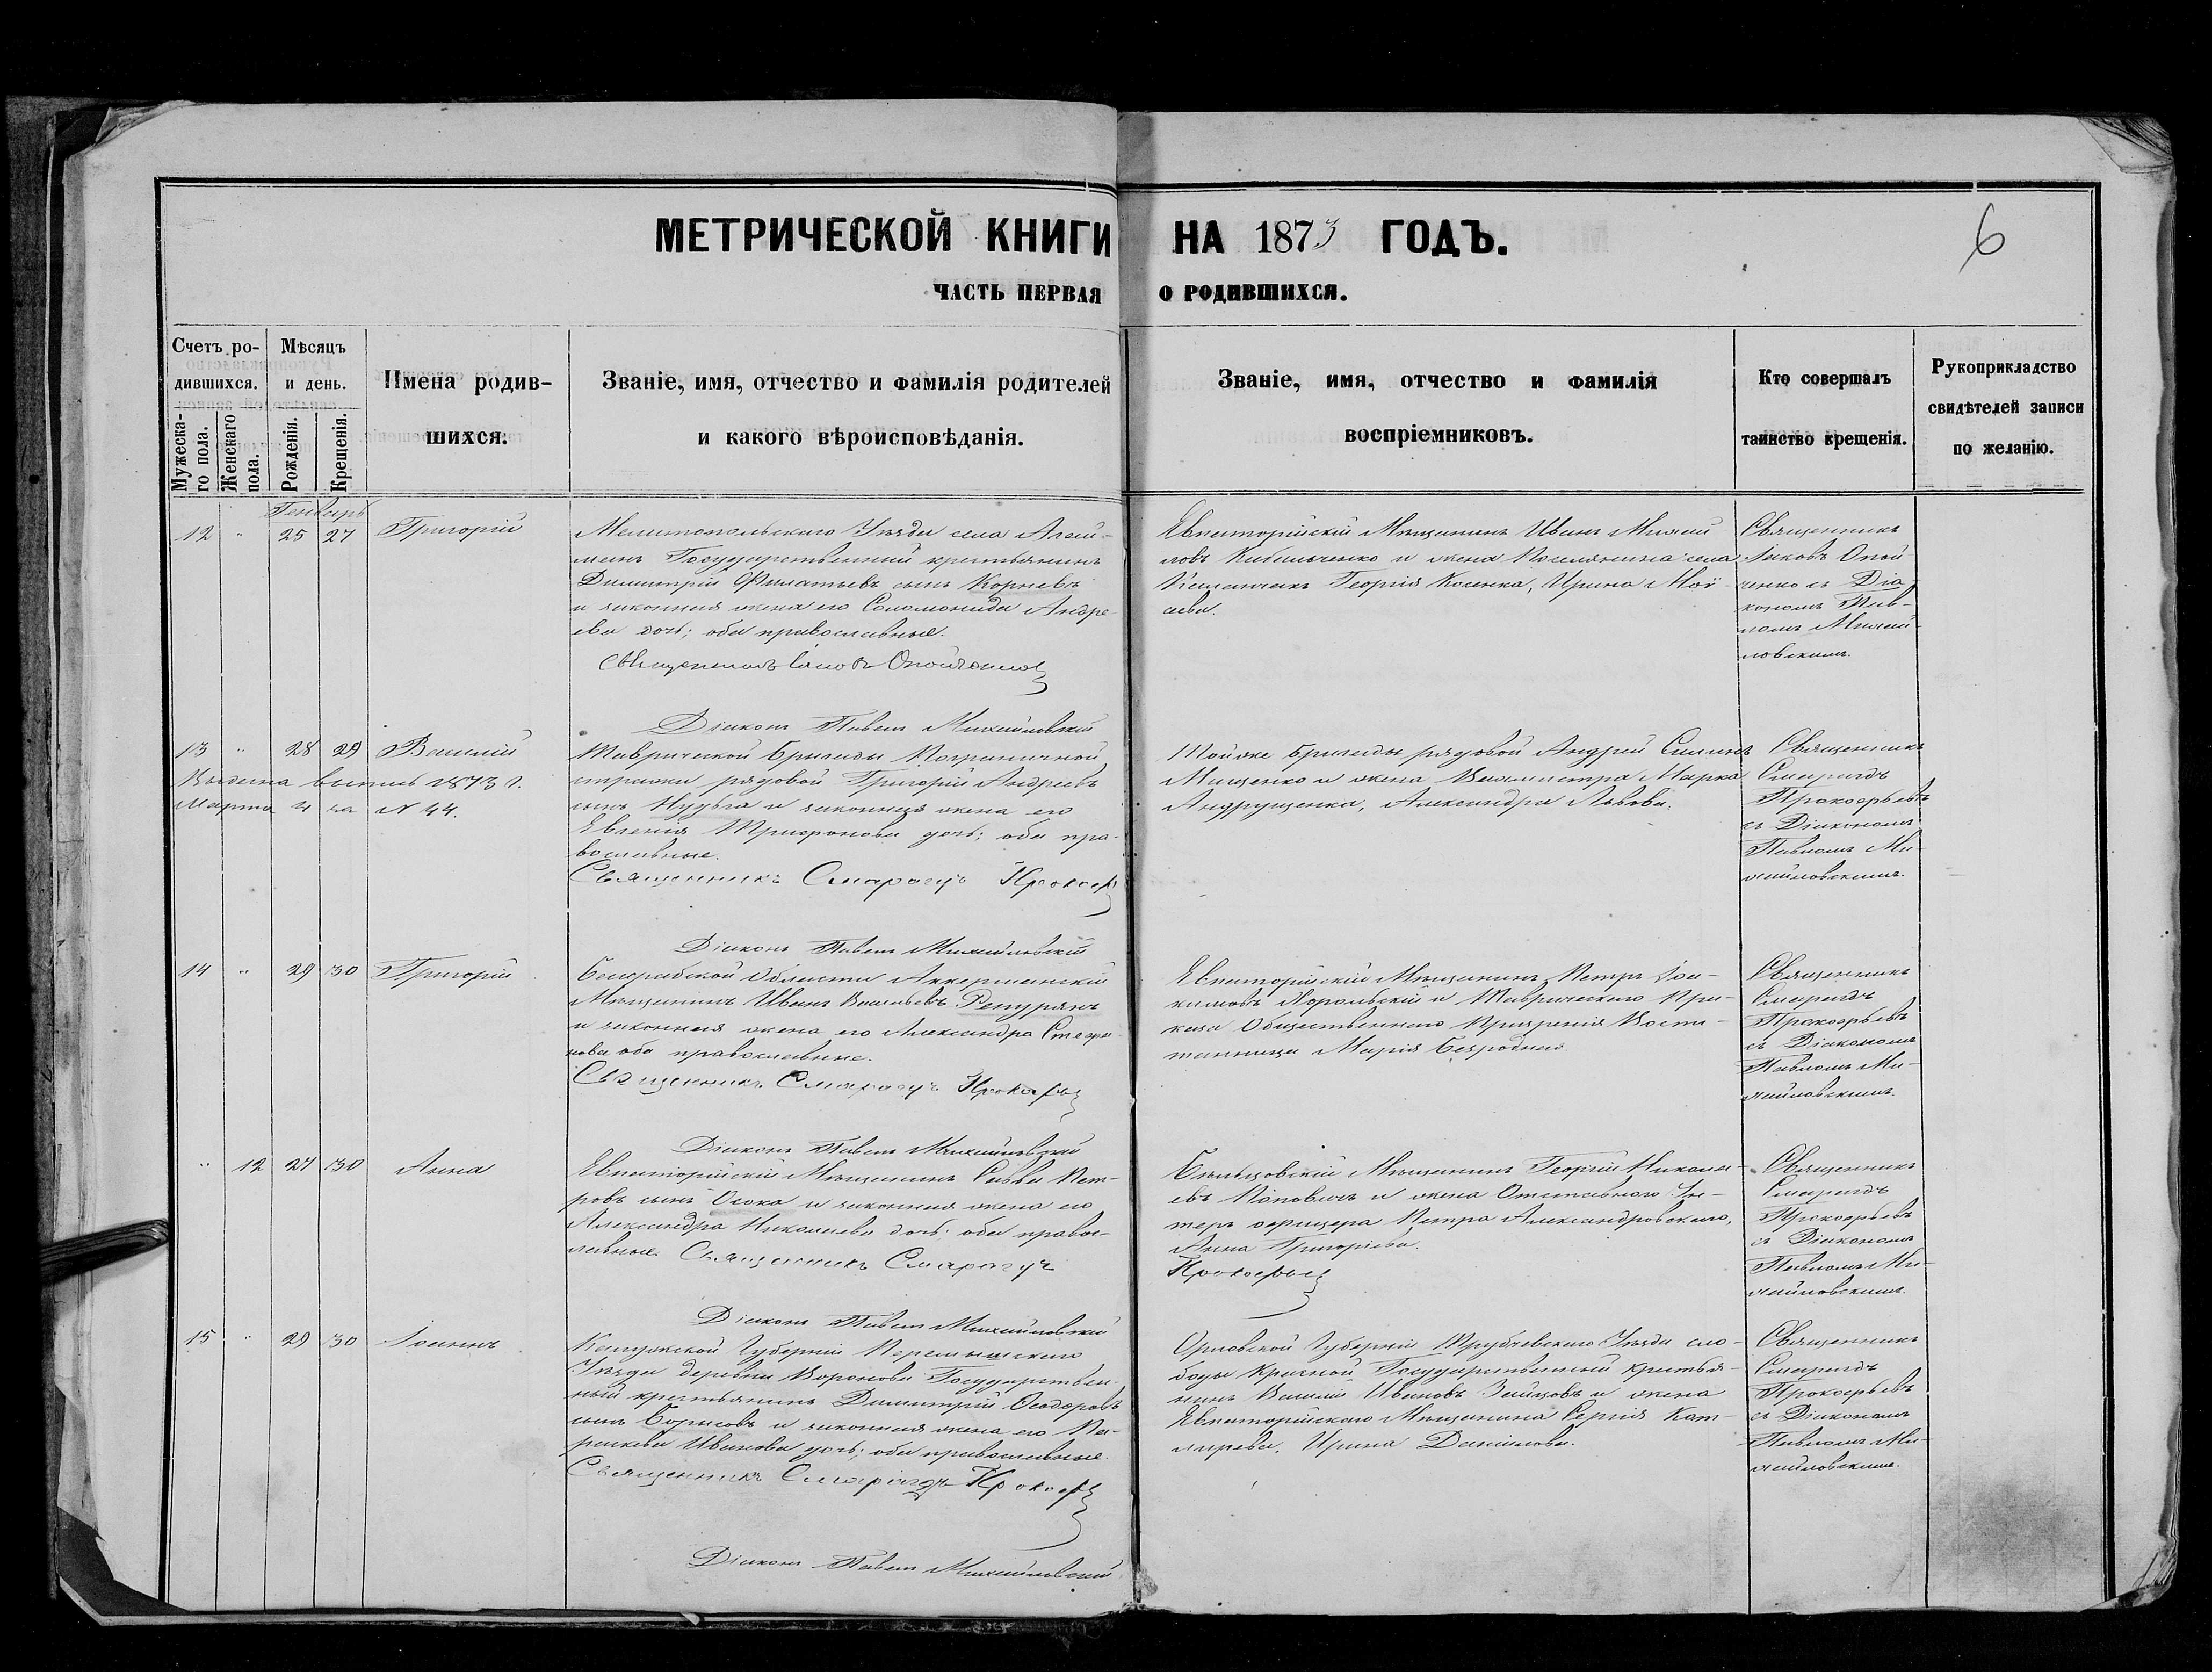 МЕТРИЧЕСКОЙ КНИГИ НА 1873 ГОДЪ.
6
ЧАСТЬ ПЕРВАЯ О РОДИВШИХСЯ.
Счетъ родившихся.
Мужескаго пола.
Женскаго пола.
Мѣсяцъ и день.
Рожденія.
Крещенія.
Имена родившихся.
Званіе, имя, отчество и фамилія родителей
и какого вѣроисповѣданія.
Званіе, имя, отчество и фамилія
воспріемниковъ.
Кто совершалъ
таинство крещенія.
Рукоприкладство
свидѣтелей записи
по желанію.
Генварь
12 " 25 27 Григорій
Мелитопольскаго Уѣзда села Агай-
манъ Государственный крестьянинъ
Димитрій Филатьевъ сынъ Корневъ
и законная жена его Соломонида Андре-
ева дочь; оба православные.
Священникъ Іаковъ Опойченко
Діаконъ Павелъ Михайловскій
Евпаторійскій Мѣщанинъ Иванъ Михай
ловъ и жена Поселянина села
Георгія Косенка, Ирина Мой
сеева.
Священникъ
Іаковъ Опой
ченко съ Діа
кономъ Пав-
ломъ Михай-
ловскимъ.
13 " 28 29 Василій
Выдана выпись 1873 г.
Марта 4 за N 44.
Таврической Бригады Пограничной
стражи рядовой Григорій Андреевъ
сынъ Нудьга и законная жена его
Евгенія Трифонова дочь; оба пра-
вославные.
Священникъ Смарагдъ Прокоф
Діаконъ Павелъ Михайловскій
Той же бригады рядовой Андрей
Мищенко и жена Вахмистра Марка
Андрущенка, Александра Львова.
Священникъ
Смарагдъ
Прокофьевъ
съ Діакономъ
Павломъ Ми-
хайловскимъ.
14 " 29 30 Григорій
Бессарабской Области Аккерманскій
Мѣщанинъ Иванъ Васильевъ Репурянъ
и законная жена его Александра Стефа
нова оба православные.
Священникъ Смарагдъ Прокофь
Діаконъ Павелъ Михайловскій
Евпаторійскій Мѣщанинъ Петръ Іоа-
кимовъ Хорольскій и Таврическаго При-
каза Общественнаго Призренія Воспи-
танница Марія Безродная
Священникъ
Смарагдъ
Прокофьевъ
съ Діакономъ
Павломъ Ми-
хайловскимъ.
" 12 27 30 Анна
Евпаторійскій Мѣщанинъ Савва Пет-
ровъ сынъ Осока и законная жена его
Александра Николаева дочь; оба право-
славные. Священникъ Смарагдъ
Діаконъ Павелъ Михайловскій
Бѣльцовскій Мѣщанинъ Георгій Никола-
евъ Поповичъ и жена Отставного Ун-
теръ офицера Петра Александровскаго,
Анна Григорьева.
Прокофьев
Священникъ
Смарагдъ
Прокофьевъ
съ Діакономъ
Павломъ Ми-
хайловскимъ.
15 " 29 30 Іоаннъ
Калужской Губерніи Перемышскаго
Уѣзда деревни Воронова Государствен-
ный крестьянинъ Димитрій Ѳеодоровъ
сынъ Борисовъ и законная жена его Па-
раскева Иванова дочь; оба православные.
Священникъ Смарагдъ Прокоф
Діаконъ Павелъ Михайловскій
Орловской Губерніи Трубчевскаго Уѣзда сло-
боды Красной Государственный крестья-
нинъ Василій Ивановъ Зайцовъ и жена
Евпаторійскаго Мѣщанина Сергія Кат-
ирина Данилова.
Священникъ
Смарагдъ
Прокофьевъ
съ Діакономъ
Павломъ Ми-
хайловскимъ.